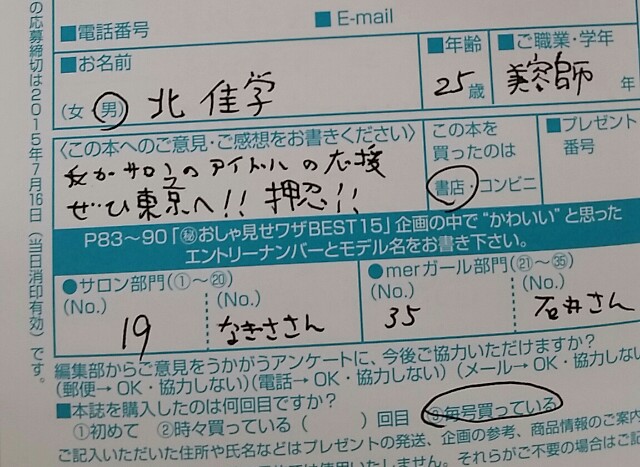 の応募締切は2015年7月16日（当日消印有効）です。
■電話番号 ■E-mail
■お名前 ■年齢 ■ご職業・学年
（女・男） 北 佳学 25歳 美容師 年
〈この本へのご意見・ご感想をお書きください〉
我がサロンのアイドルの応援
ぜひ東京へ!! 押忍!!
この本を
買ったのは
書店・コンビニ
■プレゼント
番号
P83〜90「㊙おしゃ見せワザBEST15」企画の中で“かわいい”と思った
エントリーナンバーとモデル名をお書き下さい。
●サロン部門（①〜⑳） ●merガール部門（㉑〜㉟）
（No.） （No.） （No.） （No.）
19 なぎささん 35 石井さん
編集部からご意見をうかがうアンケートに、今後ご協力いただけますか？
（郵便→OK・協力しない）（電話→OK・協力しない）（メール→OK・協力しない
■本誌を購入したのは何回目ですか？
①初めて ②時々買っている（ ）回目 ③毎号買っている
ご記入いただいた住所や氏名などはプレゼントの発送、企画の参考、商品情報のご案内